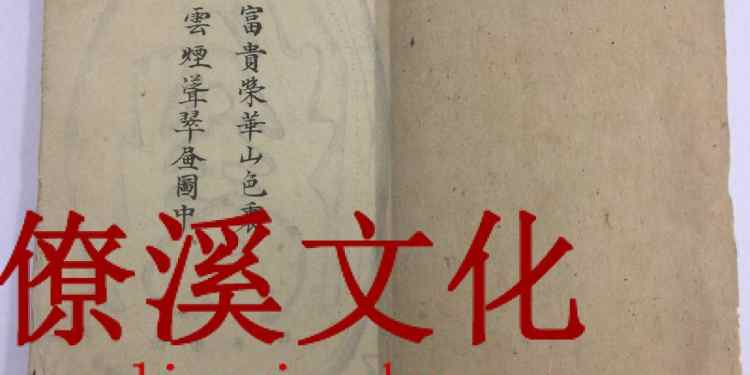 富貴榮華山色裏
雲煙聳翠畫圖中
僚溪文化